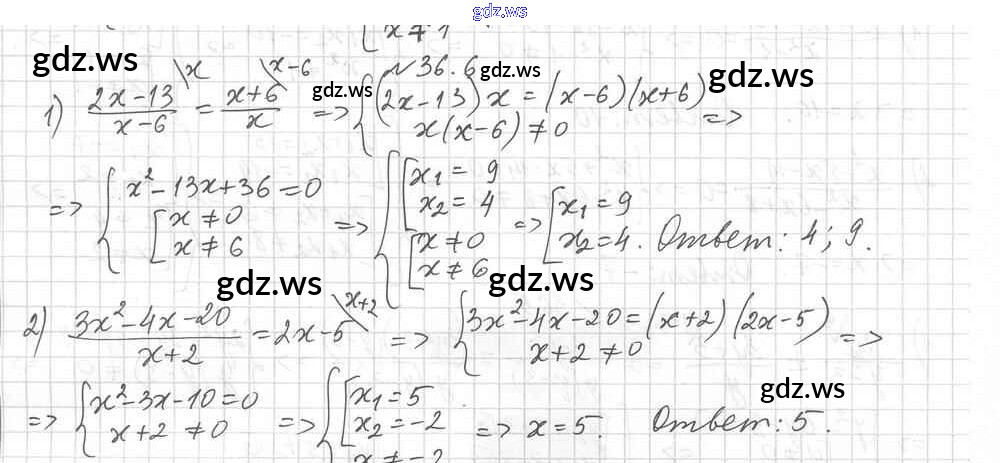 gdz.ws
x ≠ 1
gdz.ws № 36.6 gdz.ws
1) (2x-13)/(x-6) \x = (x+6)/x \x-6 gdz.ws => { (2x-13)x = (x-6)(x+6) gdz.ws
x(x-6) ≠ 0 =>
=> { x²-13x+36=0 [ x ≠ 0 x ≠ 6 => { [ x₁ = 9 x₂ = 4 [ x ≠ 0 x ≠ 6 => [ x₁ = 9 x₂ = 4. Ответ: 4; 9.
gdz.ws gdz.ws
2) (3x²-4x-20)/(x+2) = 2x-5 \x+2 => { 3x²-4x-20 = (x+2)(2x-5) x+2 ≠ 0 =>
gdz.ws
=> { x²-3x-10=0 x+2 ≠ 0 => { [ x₁ = 5 x₂ = -2 x ≠ -2 => x = 5. Ответ: 5.